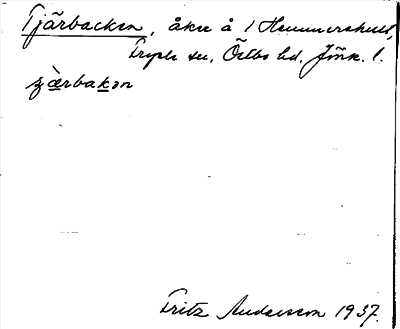 Tjärbacken, åker å 1 Hemmershult,
Fryele sn, Östbo hd, Jönk. l.
ȥæ̀rbakən
Fritz Andersson 1937.